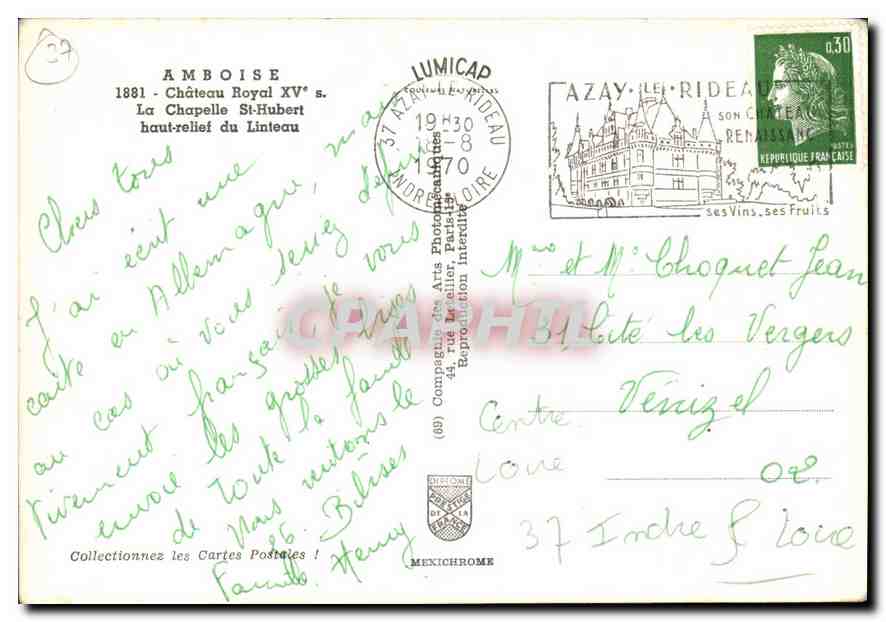 37
AMBOISE
1881 - Château Royal XVe s.
La Chapelle St-Hubert
haut-relief du Linteau
LUMICAP
37 AZAY-LE-RIDEAU
19H30
-8
1970
INDRE-ET-LOIRE
AZAY-LE-RIDEAU
SON CHATEAU
RENAISSANCE
ses Vins, ses Fruits
0,30
POSTES
REPUBLIQUE FRANÇAISE
Chers tous
J'ai écrit une
carte en Allemagne, mais
au cas où vous seriez
vivement français je vous
envoie les grosses bises
de toute la famille
Nous rentrons le
26. Bises
Famille Henry
(69) Compagnie des Arts Photomécaniques
44, rue Letellier, Paris-15e
Reproduction interdite
GPARHTL
Mme et Mr Choquet Jean
31 Cité les Vergers
Vénizel
02.
Centre
Loire
37 Indre & Loire
CHROME
PRESTIGE
DE LA
FRANCE
MEXICHROME
Collectionnez les Cartes Postales !